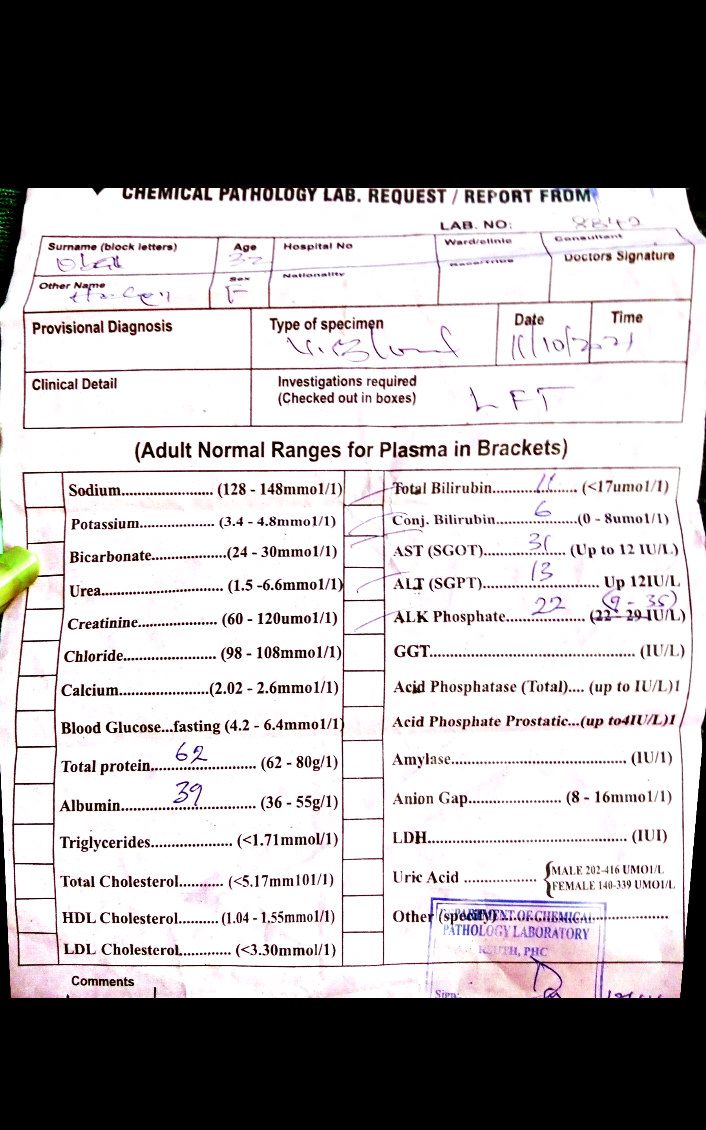 CHEMICAL PATHOLOGY LAB. REQUEST / REPORT FROM
LAB. NO: 8842
Surname (block letters) Age Hospital No Ward/clinic Consultant
32
Other Name Sex Nationality Race/Tribe Doctors Signature
F
Provisional Diagnosis Type of specimen Date Time
V. Blood 11/10/2021
Clinical Detail Investigations required
(Checked out in boxes) LFT
(Adult Normal Ranges for Plasma in Brackets)
Sodium....................... (128 - 148mmo1/1)
Potassium................... (3.4 - 4.8mmo1/1)
Bicarbonate...................(24 - 30mmo1/1)
Urea............................ (1.5 -6.6mmo1/1)
Creatinine................... (60 - 120umo1/1)
Chloride...................... (98 - 108mmo1/1)
Calcium.......................(2.02 - 2.6mmo1/1)
Blood Glucose...fasting (4.2 - 6.4mmo1/1)
Total protein...62... (62 - 80g/1)
Albumin...39... (36 - 55g/1)
Triglycerides................... (<1.71mmol/1)
Total Cholesterol........... (<5.17mm101/1)
HDL Cholesterol.......... (1.04 - 1.55mmo1/1)
LDL Cholesterol............. (<3.30mmol/1)
Total Bilirubin...11... (<17umo1/1)
Conj. Bilirubin...6...(0 - 8umo1/1)
AST (SGOT)...31... (Up to 12 IU/L)
ALT (SGPT)...13... Up 12IU/L
(9 - 35)
ALK Phosphate...22... (22 - 29 IU/L)
GGT.......................................... (IU/L)
Acid Phosphatase (Total).... (up to IU/L)1
Acid Phosphate Prostatic...(up to4IU/L)1
Amylase..................................... (IU/1)
Anion Gap....................... (8 - 16mmo1/1)
LDH........................................... (IUI)
Uric Acid ................ {MALE 202-416 UMO1/L
{FEMALE 140-339 UMO1/L
Other (specify)...............................
DEPARTMENT OF CHEMICAL
PATHOLOGY LABORATORY
PHC
Sign:
Comments